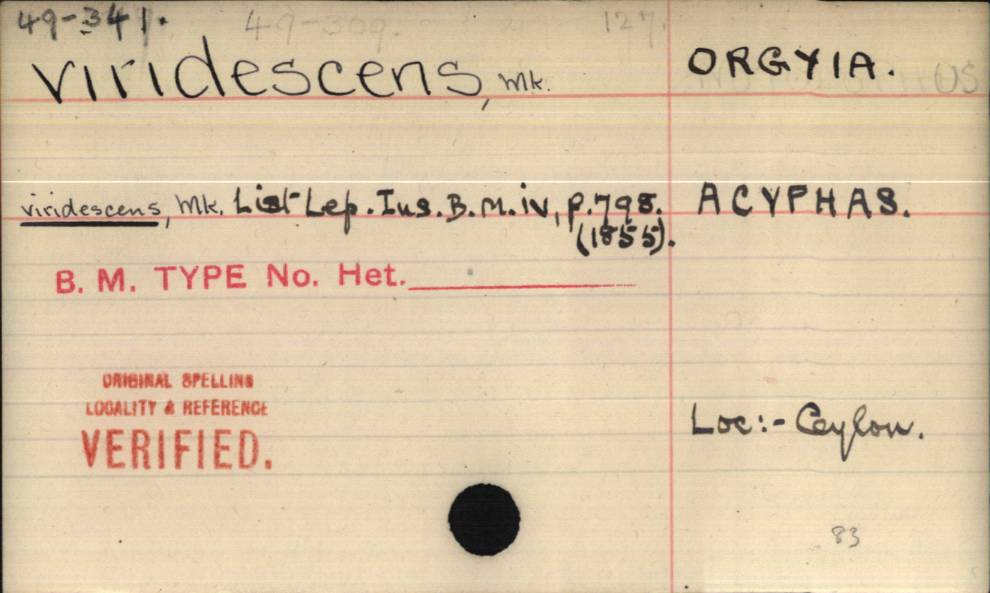 49-341. 49-309. 127.
viridescens, Wlk. ORGYIA.
viridescens, Wlk. List Lep. Ins. B.M. iv, p. 798. ACYPHAS.
(1855).
B. M. TYPE No. Het.
ORIGINAL SPELLING
LOCALITY & REFERENCE
VERIFIED.
Loc:- Ceylon.
83